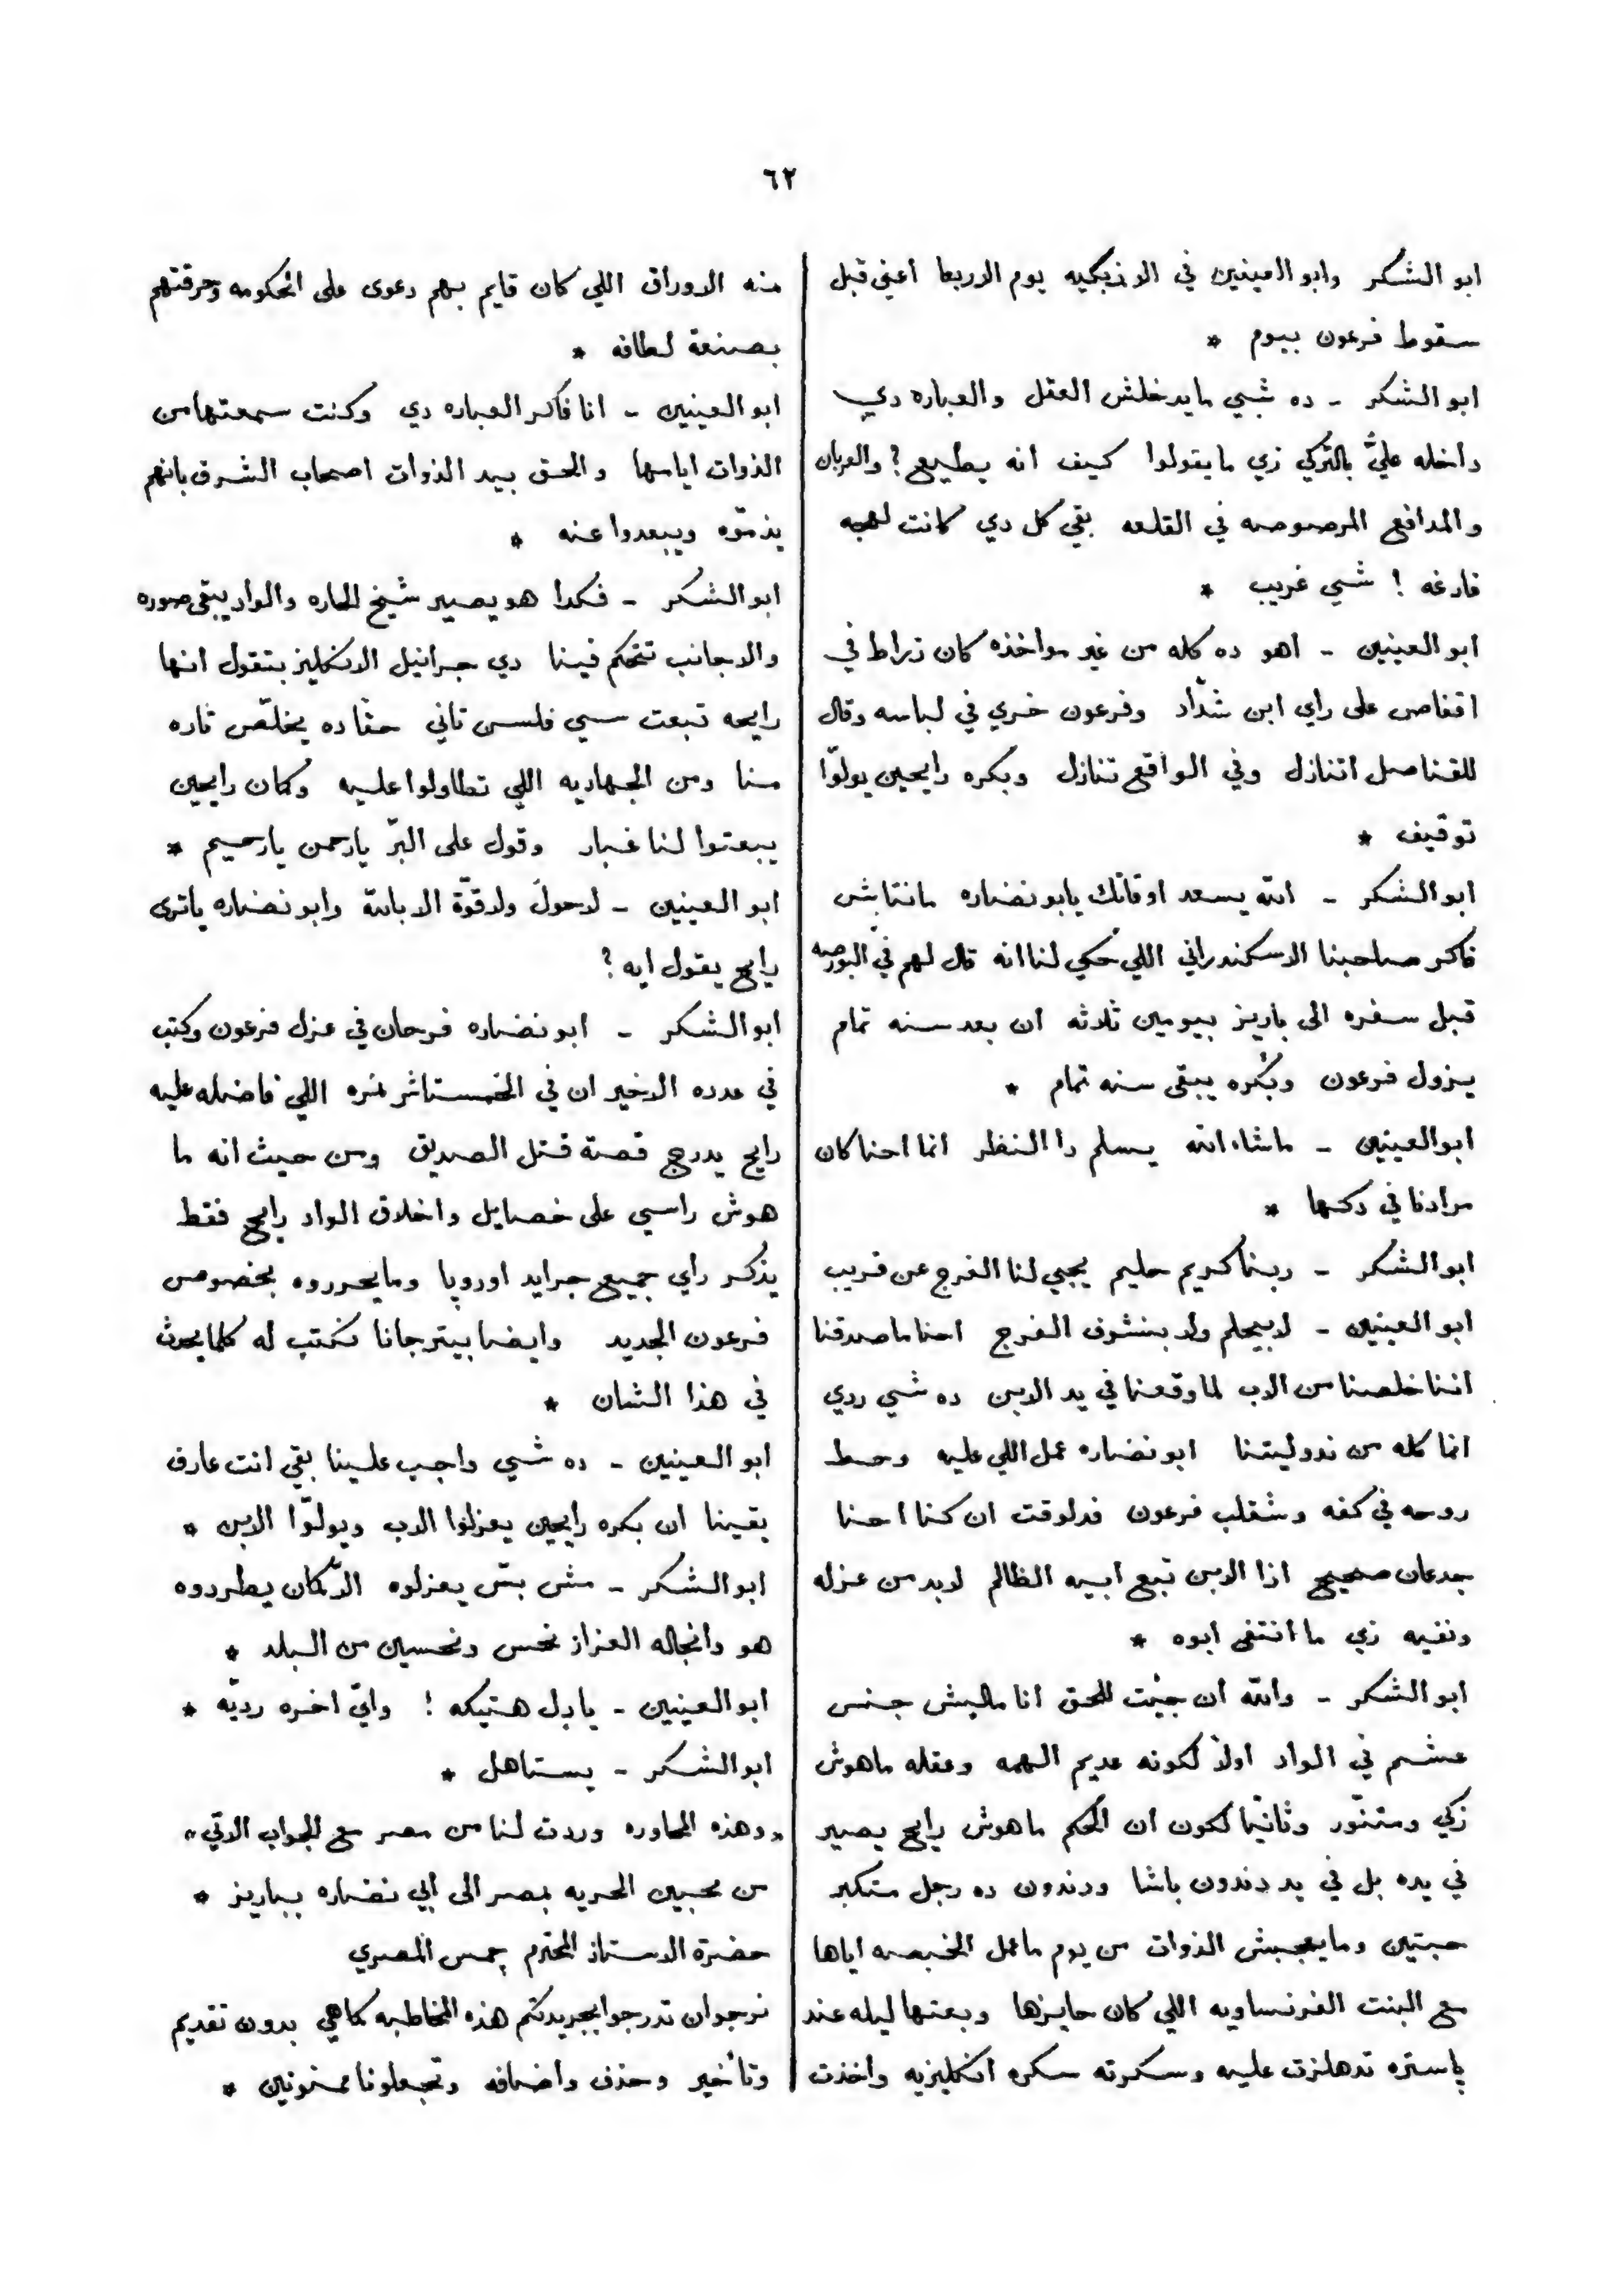 ٦٢
ابو الشكر وابو العينين في الازبكيه يوم الاربعا اعني قبل
سقوط فرعون بيوم *
ابو الشكر - ده شيي مايدخلش العقل والعباره دي
داخله عليّ بالتركي زي مايقولوا كيف انه يطيع ? والعربان
والمدافع المرصوصه في القلعه بقي كل دي كانت لعبه
فارغه ! شيي غريب *
ابو العينين - اهو ده كله من غير مواخذه كان زراط في
اقفاص على راي ابن شدّاد وفرعون خري في لباسه وقال
للقناصل اتنازل وفي الواقع تنازل وبكره رايحين يولوّا
توقيف *
ابو الشكر - الله يسعد اوقاتك يابو نضاره مانتاش
فاكر صاحبنا الاسكندراني اللي حكي لنا انه قال لهم في البورصه
قبل سفره الى باريز بيومين ثلاثه ان بعد سنه تمام
يزول فرعون وبكره يبقى سنه تمام *
ابو العينين - ماشاء الله يسلم دا النظر انما احنا كان
مرادنا في دكها *
ابو الشكر - ربنا كريم حليم يجيي لنا الفرج عن قريب
ابو العينين - لا بيحلم ولا بنشوف الفرج احنا ماصدقنا
اننا خلصنا من الاب لما وقعنا في يد الابن ده شيي ردي
انما كله من ندوليتنا ابو نضاره عمل اللي عليه وحط
روحه في كفه وشقلب فرعون فدلوقت ان كنا احنا
جدعان صحيح اذا الابن تبع ابيه الظالم لابد من عزله
ونفيه زي ما انتفى ابوه *
ابو الشكر - والله ان جيْت للحق انا ماليش جنس
عشم في الواد اولاً لكونه عديم الهمه وعقله ماهوش
زكي ومتنوّر وثانيًا لكون ان الحكم ماهوش رايح يصير
في يده بل في يد دندون باشا ودندون ده رجل متكبر
حبتين ومايعجبش الذوات من يوم ماعمل الخبصه اياها
مع البنت الفرنساويه اللي كان حايزها وبعتها ليله عند
پاستره تدهلزت عليه وسكرته سكره انكليزيه واخذت
منه الاوراق اللي كان قايم بهم دعوى على الحكومه وحرقتهم
بصنعة لطافه *
ابو العينين - انا فاكر العباره دي وكنت سمعتها من
الذوات اياسها والحق بيد الذوات اصحاب الشرف بانهم
يذمّوه ويبعدوا عنه *
ابو الشكر - فكدا هو يصير شيخ الحاره والواد يبقى صوره
والاجانب تتحكم فينا دي جرانيل الانكليز بتقول انها
رايحه تبعت سيي فلسن تاني حقا ده يخلّص تاره
منا ومن الجهاديه اللي تطاولوا عليه وكمان رايحين
يبعتوا لنا غبار وقول على البرّ يارحمن يارحيم *
ابو العينين - لاحولَ ولاقوّة الا بالله وابو نضاره ياترى
رايح يقول ايه ?
ابو الشكر - ابو نضاره فرحان في عزل فرعون وكتب
في عدده الاخير ان في الخمستاشر نمره اللي فاضله عليه
رايح يدرج قصة قتل الصديق ومن حيث انه ما
هوش راسي على خصايل واخلاق الواد رايح فقط
يذكر راي جميع جرايد اوروپا ومايحرروه بخصوص
فرعون الجديد وايضا بيترجانا نكتب له كلما يحدث
في هذا الشان *
ابو العينين - ده شيي واجب علينا بقي انت عارف
يقينا ان بكره رايحين يعزلوا الاب ويولوّا الابن *
ابو الشكر - مش بسّ يعزلوه الاّ كمان يطردوه
هو وانجاله العزاز نحس ونحسين من البلد *
ابو العينين - يادل هتيكه ! وايّ اخره رديّه *
ابو الشكر - يستاهل *
„وهذه المحاوره وردت لنا من مصر مع الجواب الاتي„
من محبين الحريه بمصر الى ابي نضاره بباريز *
حضرة الاستاذ المحترم جمس المصري
نرجوان تدرجوا بجريدتكم هذه المخاطبه كماهي بدون تقديم
وتأخير وحذف واضافه وتجعلونا ممنونين *